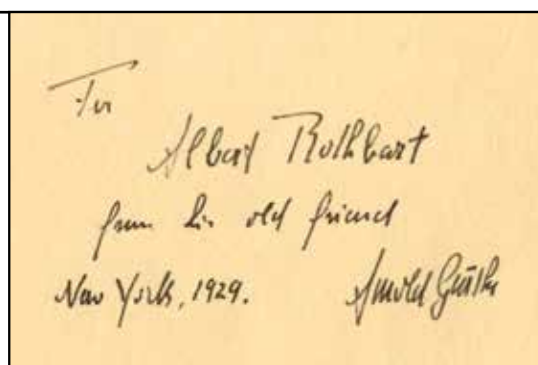 For
Albert Rothbart
from his old friend
New York, 1929. Arnold Genthe